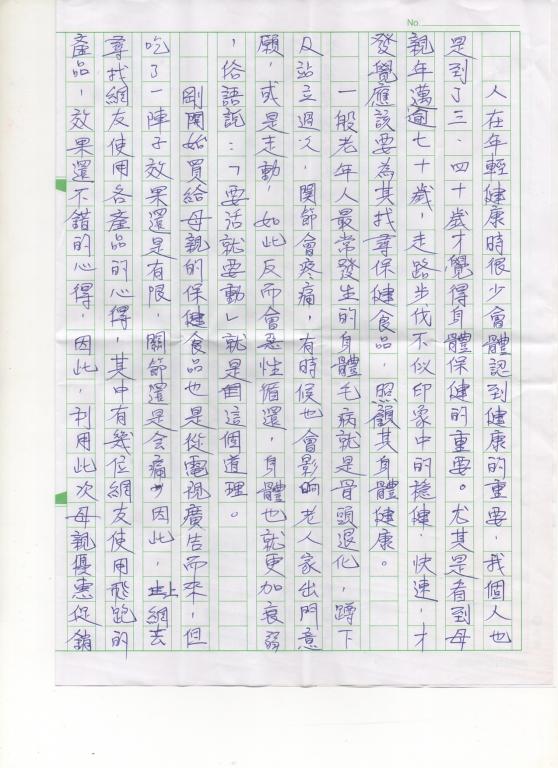 No.
人在年輕健康時很少會體認到健康的重要，我個人也
是到了三、四十歲才覺得身體保健的重要。尤其是看到母
親年邁逾七十歲，走路步伐不似印象中的穩健、快速，才
發覺應該要為其找尋保健食品，照顧其身體健康。
一般老年人最常發生的身體毛病就是骨頭退化，蹲下
及站立過久，關節會疼痛，有時候也會影响老人家出門意
願，或是走動，如此反而會惡性循還，身體也就更加衰弱
，俗語說：「要活就要動」就是這個道理。
剛開始買給母親的保健食品也是從電視廣告而來，但
吃了一陣子效果還是有限，關節還是会痛，因此，上網去
尋找網友使用各產品的心得，其中有幾位網友使用飛跑的
產品，效果還不錯的心得，因此，利用此次母親優惠促銷